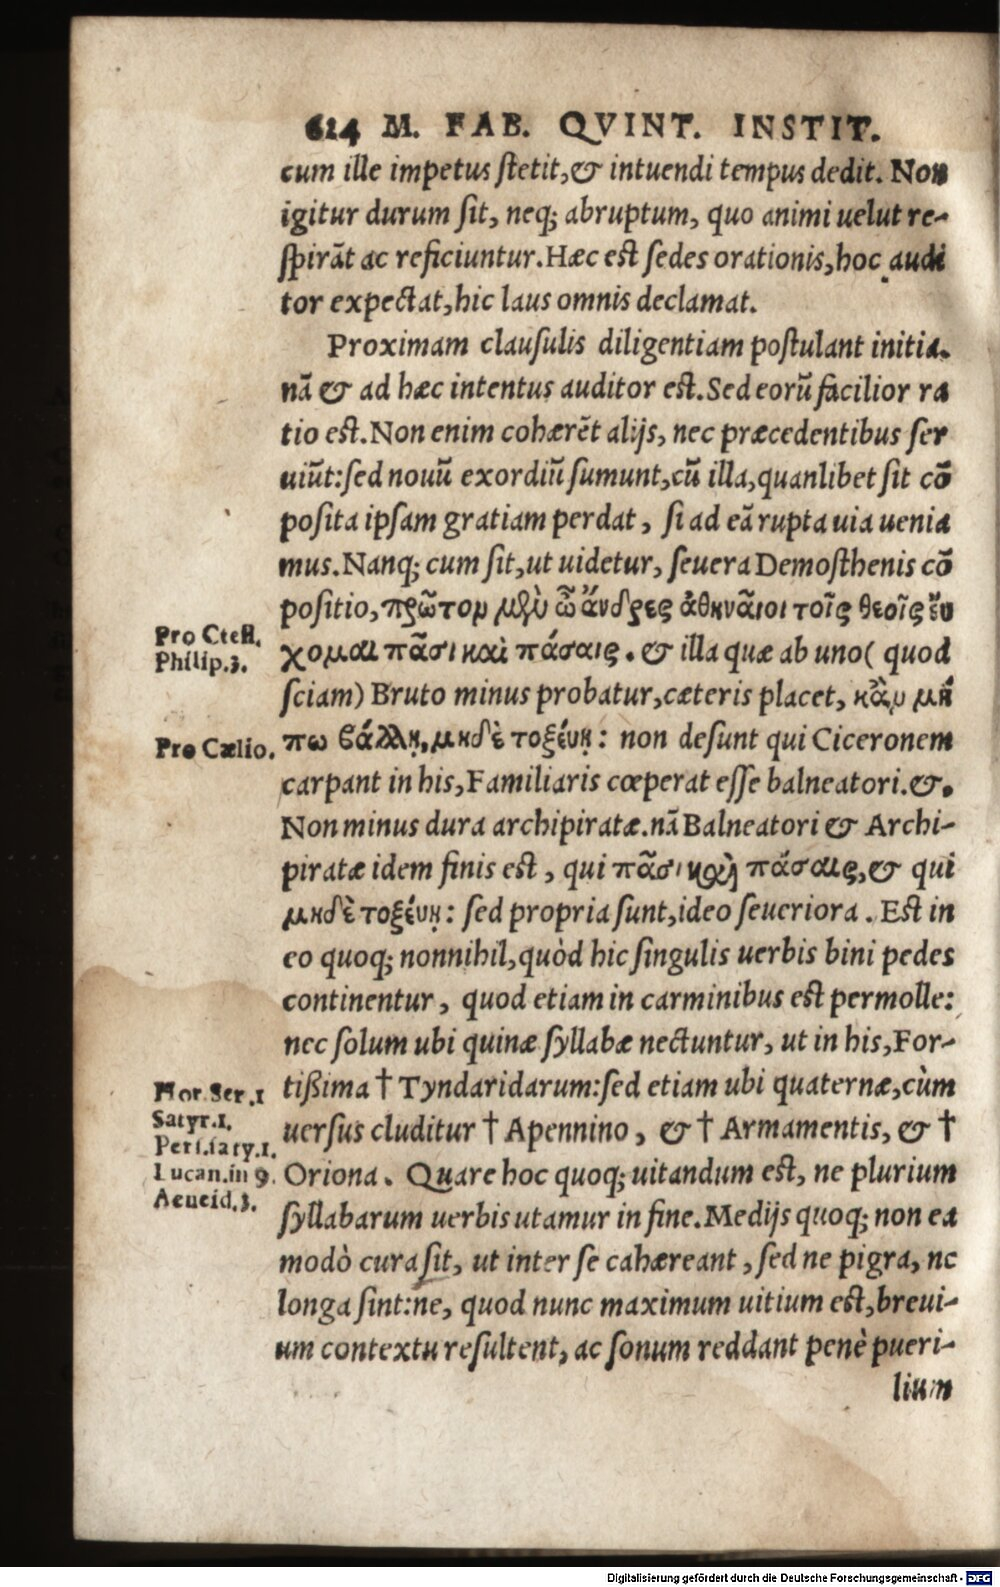 624 M. FAB. QVINT. INSTIT.
cum ille impetus stetit, & intuendi tempus dedit. Non
igitur durum sit, neq; abruptum, quo animi uelut re-
spirãt ac reficiuntur. Hæc est sedes orationis, hoc audi
tor expectat, hic laus omnis declamat.
Proximam clausulis diligentiam postulant initia.
nã & ad hæc intentus auditor est. Sed eorũ facilior ra
tio est. Non enim cohærẽt alijs, nec præcedentibus ser
uiũt: sed nouũ exordiũ sumunt, cũ illa, quanlibet sit cõ
posita ipsam gratiam perdat, si ad eã rupta uia uenia
mus. Nanq; cum sit, ut uidetur, seuera Demosthenis cõ
positio, πρῶτον μὲν ὦ ἄνδρες ἀθηνᾶιοι τοῖς θεοῖς ἔυ
Pro Ctesi.
Philip.3.
χομαι πᾶσι καὶ πάσαις. & illa quæ ab uno (quod
sciam) Bruto minus probatur, cæteris placet, κἂν μή
Pro Cælio.
πω βάλλῃ, μηδὲ τοξέυῃ: non desunt qui Ciceronem
carpant in his, Familiaris cœperat esse balneatori. &.
Non minus dura archipiratæ. nã Balneatori & Archi-
piratæ idem finis est, qui πᾶσι καὶ πάσαις, & qui
μηδὲ τοξέυῃ: sed propria sunt, ideo seueriora. Est in
eo quoq; nonnihil, quòd hic singulis uerbis bini pedes
continentur, quod etiam in carminibus est permolle:
nec solum ubi quinæ syllabæ nectuntur, ut in his, For-
tißima † Tyndaridarum: sed etiam ubi quaternæ, cùm
Hor. Ser.1
Satyr.1.
Persi. saty.1.
Lucan. in 9.
Aeneid.3.
uersus cluditur † Apennino, & † Armamentis, & †
Oriona. Quare hoc quoq; uitandum est, ne plurium
syllabarum uerbis utamur in fine. Medijs quoq; non ea
modò cura sit, ut inter se cahæreant, sed ne pigra, ne
longa sint: ne, quod nunc maximum uitium est, breui-
um contextu resultent, ac sonum reddant penè pueri-
lium
Digitalisierung gefördert durch die Deutsche Forschungsgemeinschaft - DFG